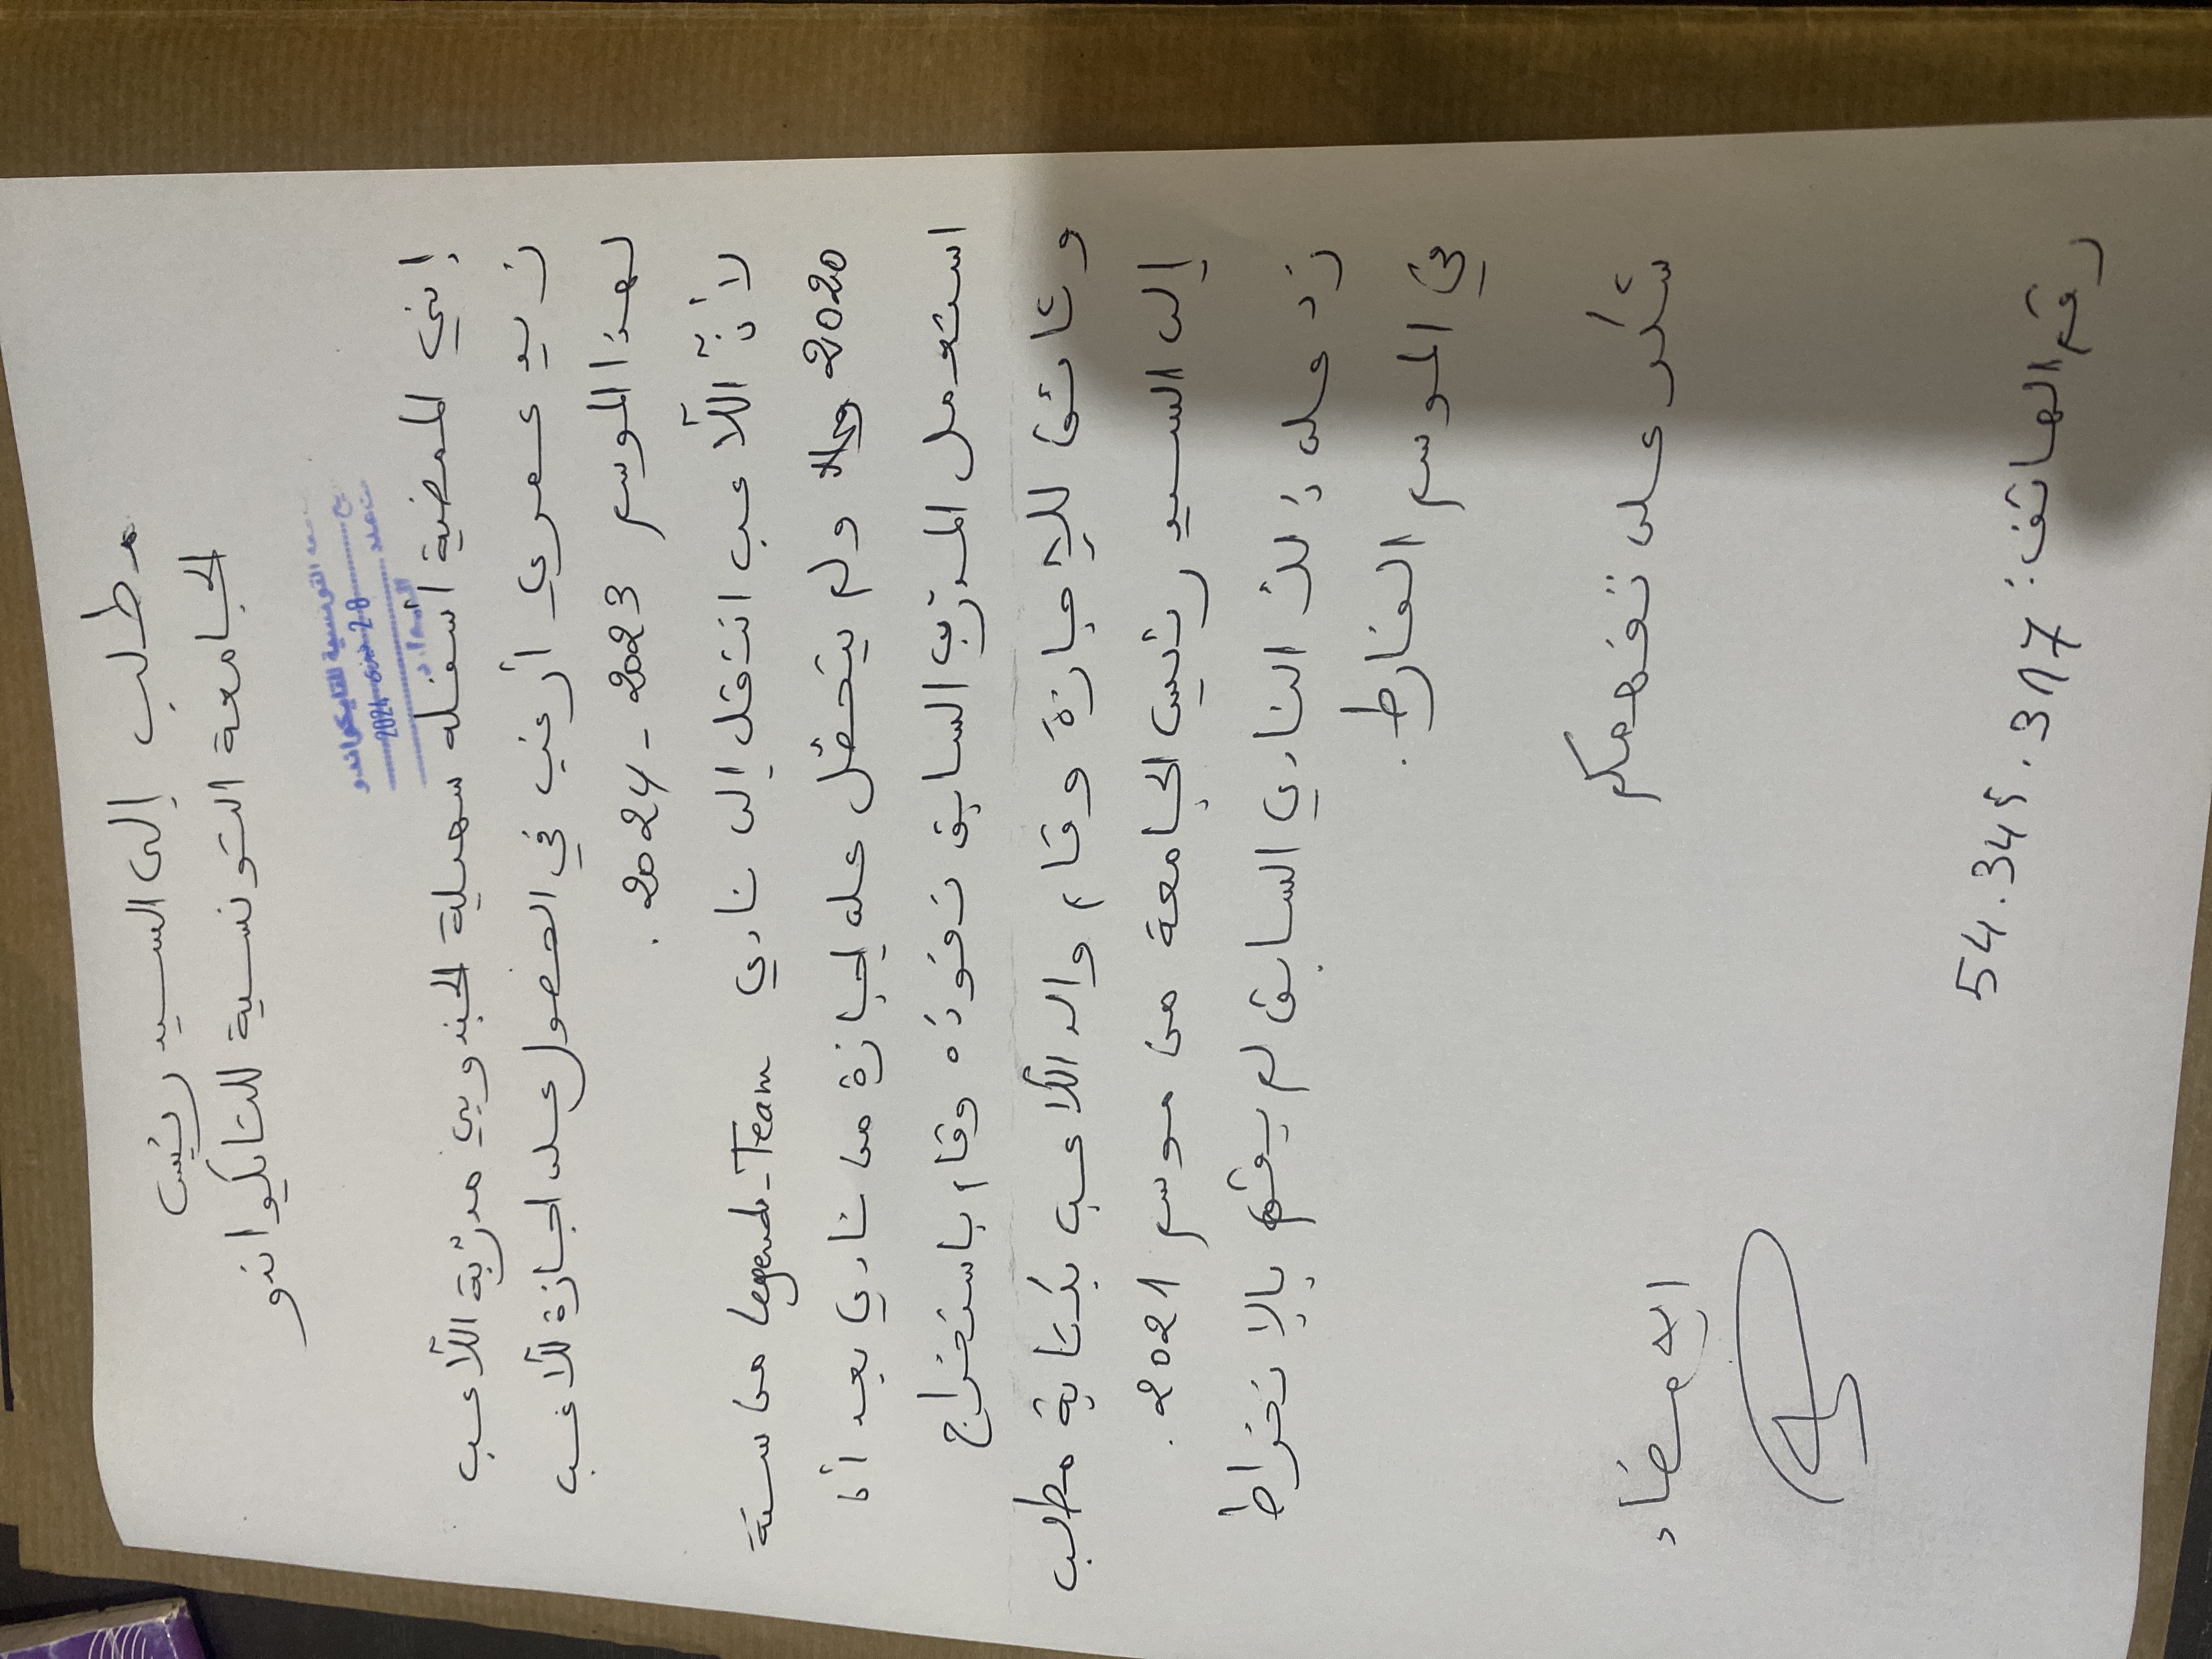 مطلب إلى السيد رئيس
الجامعة التونسية للتايكواندو
الجامعة التونسية للتايكواندو
إنني الممضية أسفله سهيلة الجندوبي مدرّبة اللّاعب
زيد عمري أرغب في الحصول على اجازة للّاعب
لهذا الموسم 2023 - 2024.
لأنّ اللّاعب انتقل إلى نادي Legends-Team من سنة
2020 ولم يتحصّل على إجازة من نادي بعد أن
استعمل المدرّب السابق نفوذه وقام باستخراج
وثائق للإجازة وقام والد اللّاعب بكتابة مطلب
إلى السيد رئيس الجامعة من موسم 2021.
زد على ذلك النادي السابق لم يقم بالإنخراط
في الموسم الفارط.
شكرا على تفهمكم
الإمضاء
رقم الهاتف: 54.345.317